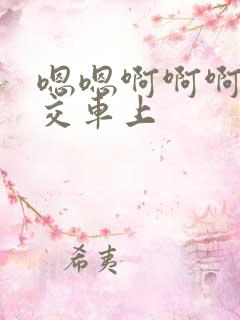 嗯嗯啊啊啊
交车上
希夷